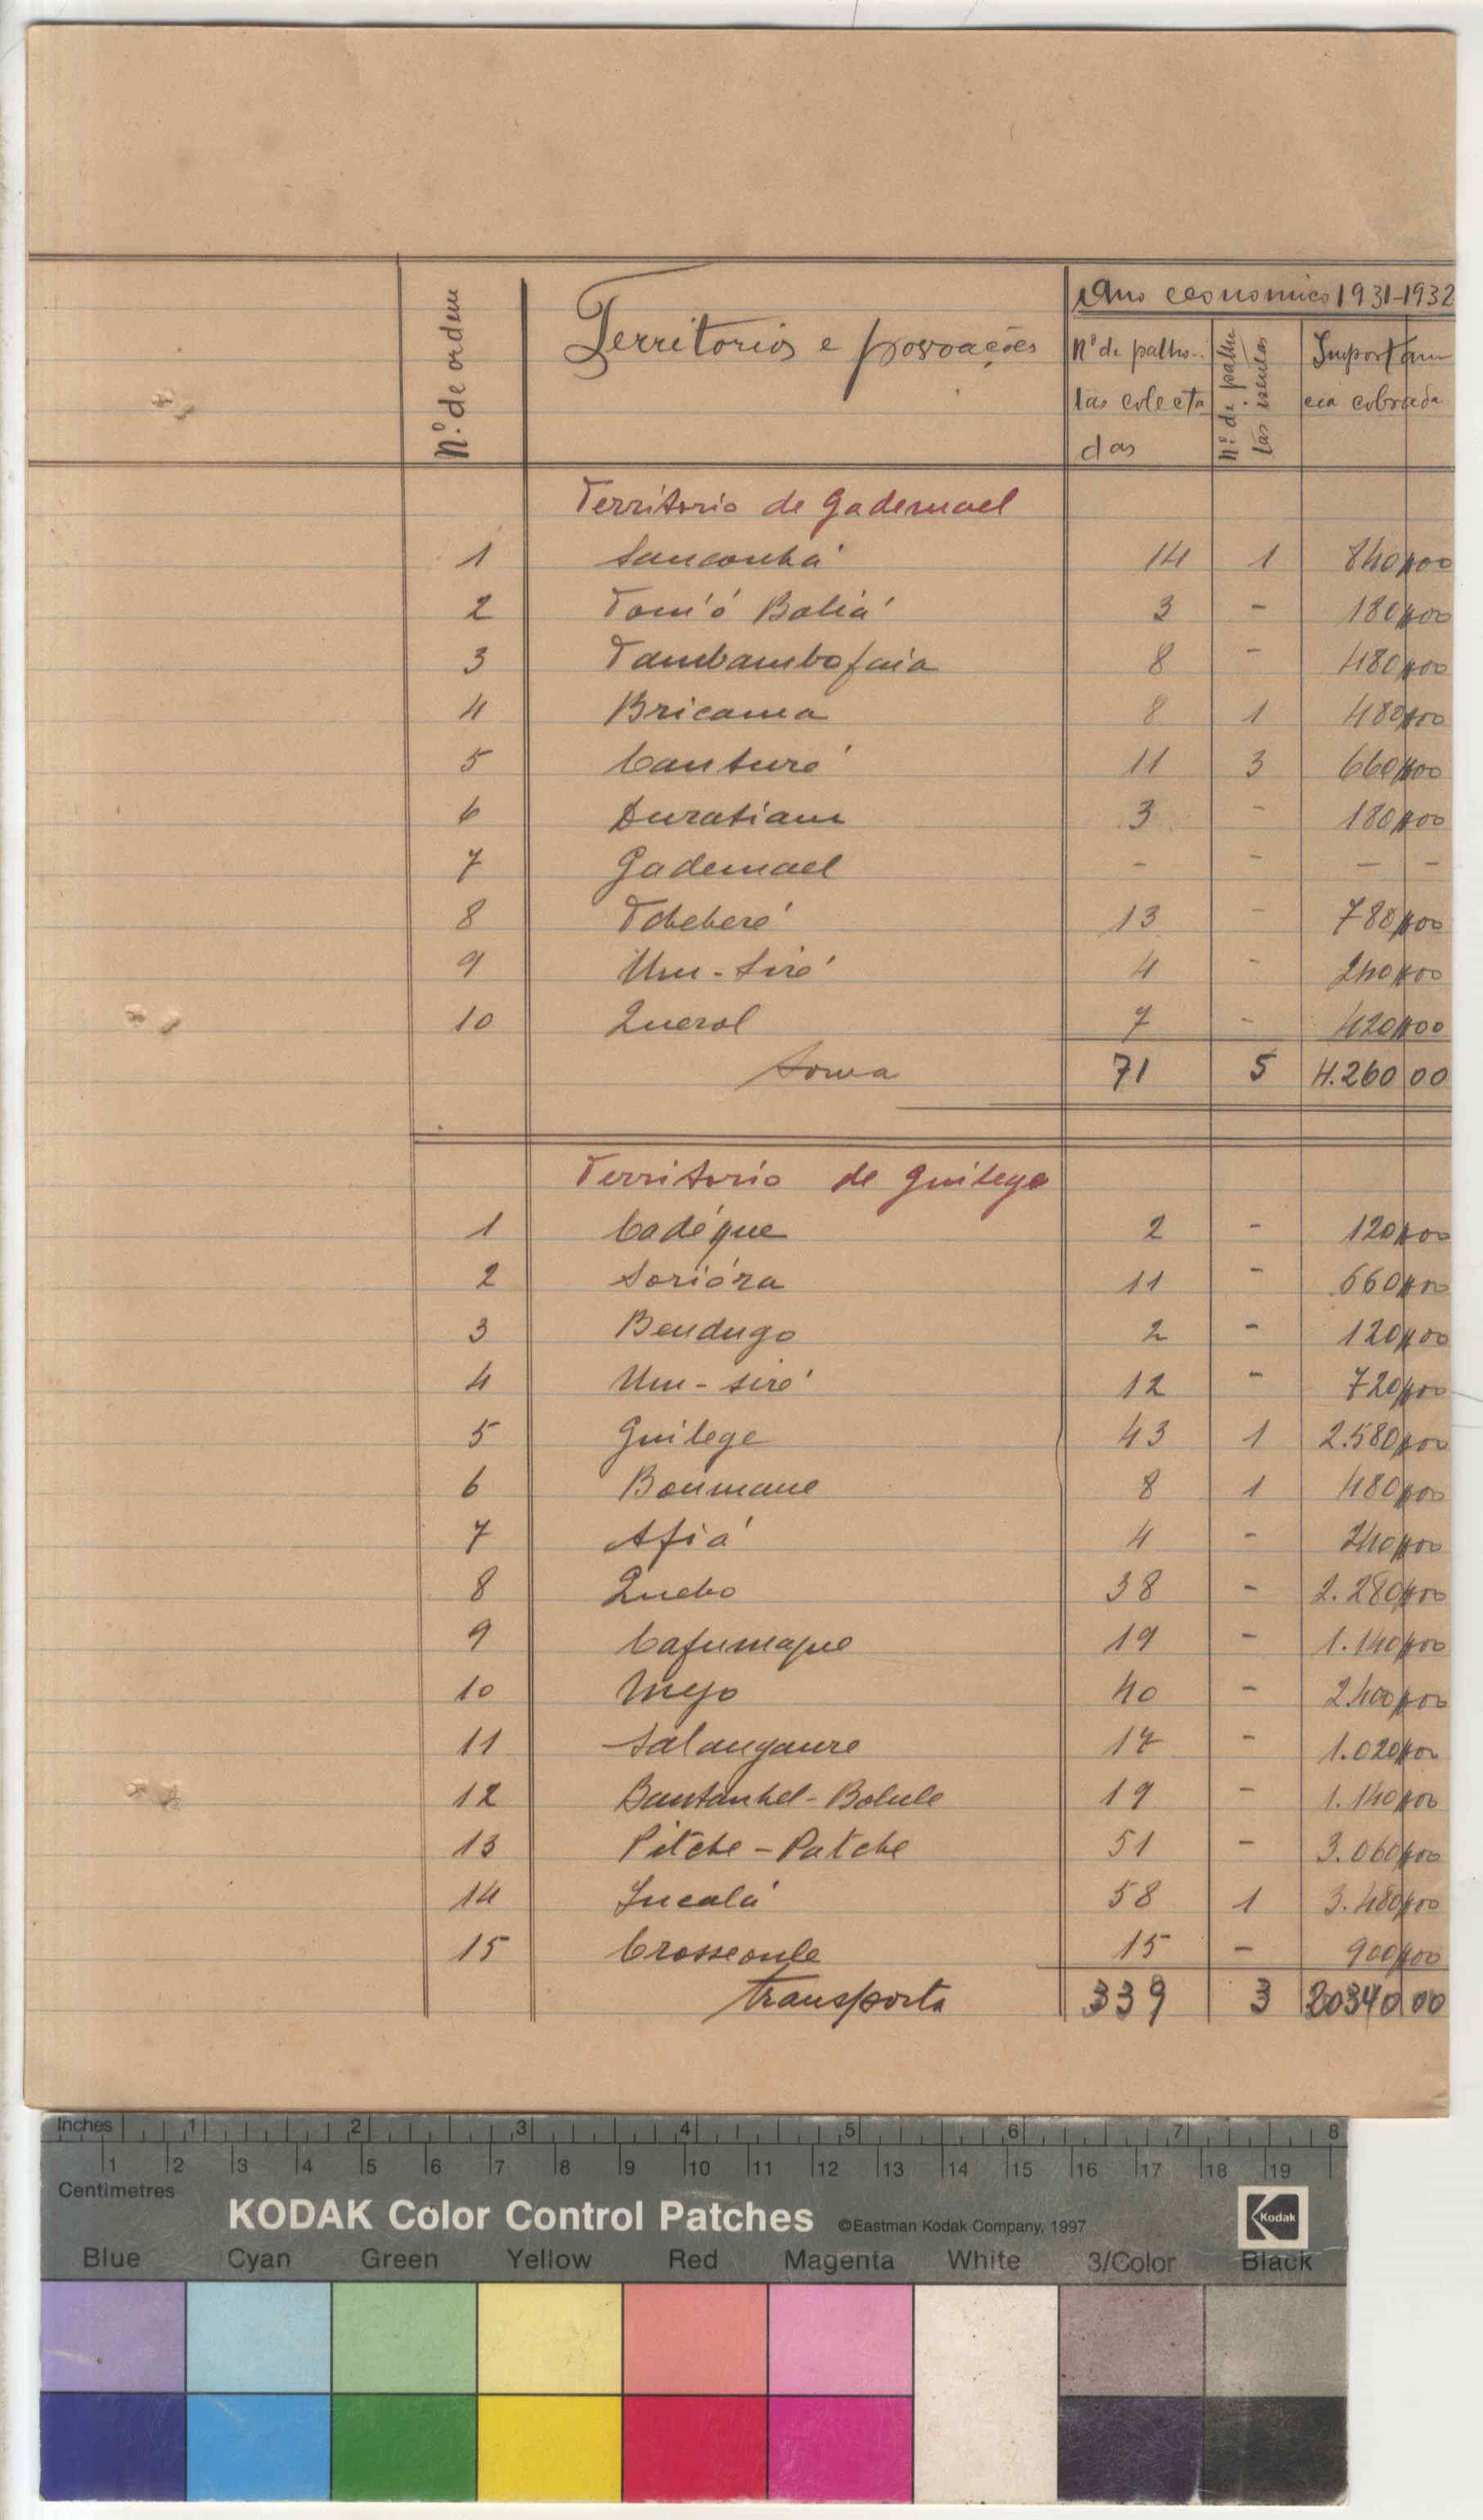 Nº. de ordem
Territorios e povoações
Ano economico 1931-1932
Nº de palho-
tas colecta
das
Nº. de palho
tas isentas
Importan
cia cobrada
Territorio de Gademael
1 Sanconhá 14 1 840$00
2 3 - 180$00
3 Tambambofaia 8 - 480$00
4 Bricama 8 1 480$00
5 Canturé 11 3 660$00
6 Duratiam 3 - 180$00
7 Gademael - - - -
8 13 - 780$00
9 Um-Siré 4 - 240$00
10 Querol 7 - 420$00
Soma 71 5 4.260 00
Territorio de Guilege
1 Cadéque 2 - 120$00
2 Sorióra 11 - 660$00
3 Bendugo 2 - 120$00
4 Um-siré 12 - 720$00
5 Guilege 43 1 2.580$00
6 Boumane 8 1 480$00
7 Afiá 4 - 240$00
8 Quebo 38 - 2.280$00
9 Cafumaque 19 - 1.140$00
10 Mejo 40 - 2.400$00
11 Salanganre 17 - 1.020$00
12 Bantanhel-Bolule 19 - 1.140$00
13 Pitche-Patche 51 - 3.060$00
14 58 1 3.480$00
15 15 - 900$00
Transporta 339 3 20340 00
Inches 1 2 3 4 5 6 7 8
1 2 3 4 5 6 7 8 9 10 11 12 13 14 15 16 17 18 19
Centimetres
KODAK Color Control Patches ©Eastman Kodak Company, 1997 Kodak
Blue Cyan Green Yellow Red Magenta White 3/Color Black